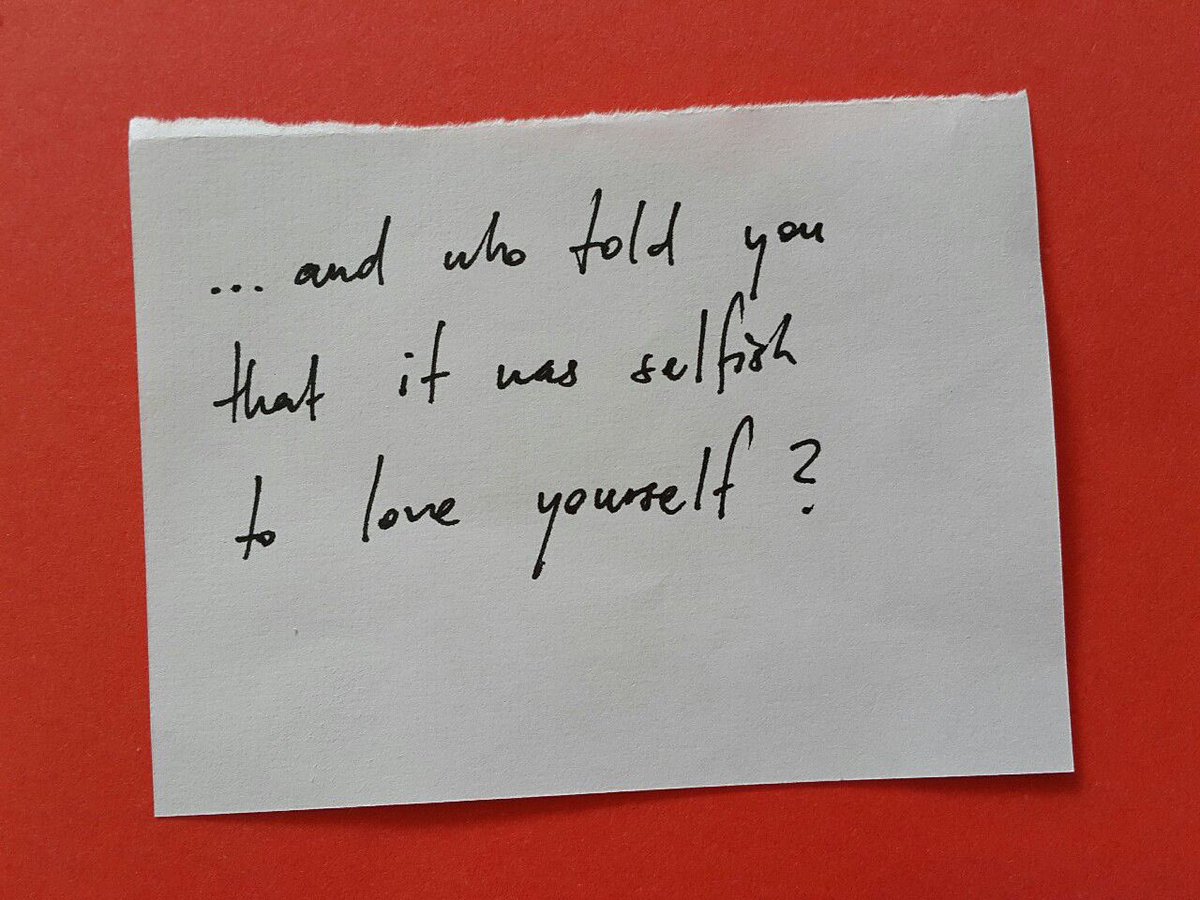 ...and who told you
that it was selfish
to love yourself?